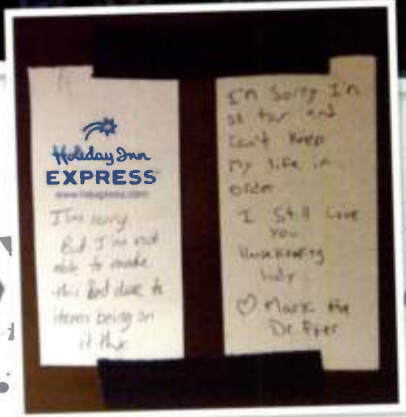 Holiday Inn
EXPRESS
www.hiexpress.com
I'm sorry
But I'm not
able to make
this bed due to
items being on
it thx
I'm Sorry I'm
so far and
Can't keep
my life in
order
I Still Love
you
Housekeeping
lady
♡ Mark the
Dr.